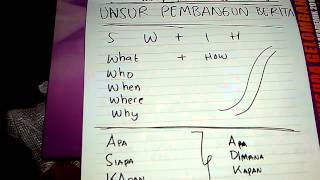 UNSUR PEMBANGUN BERITA
5 W + 1 H
What + How
Who
When
Where
Why
APA
SIAPA
KAPAN
APA
DIMANA
KAPAN